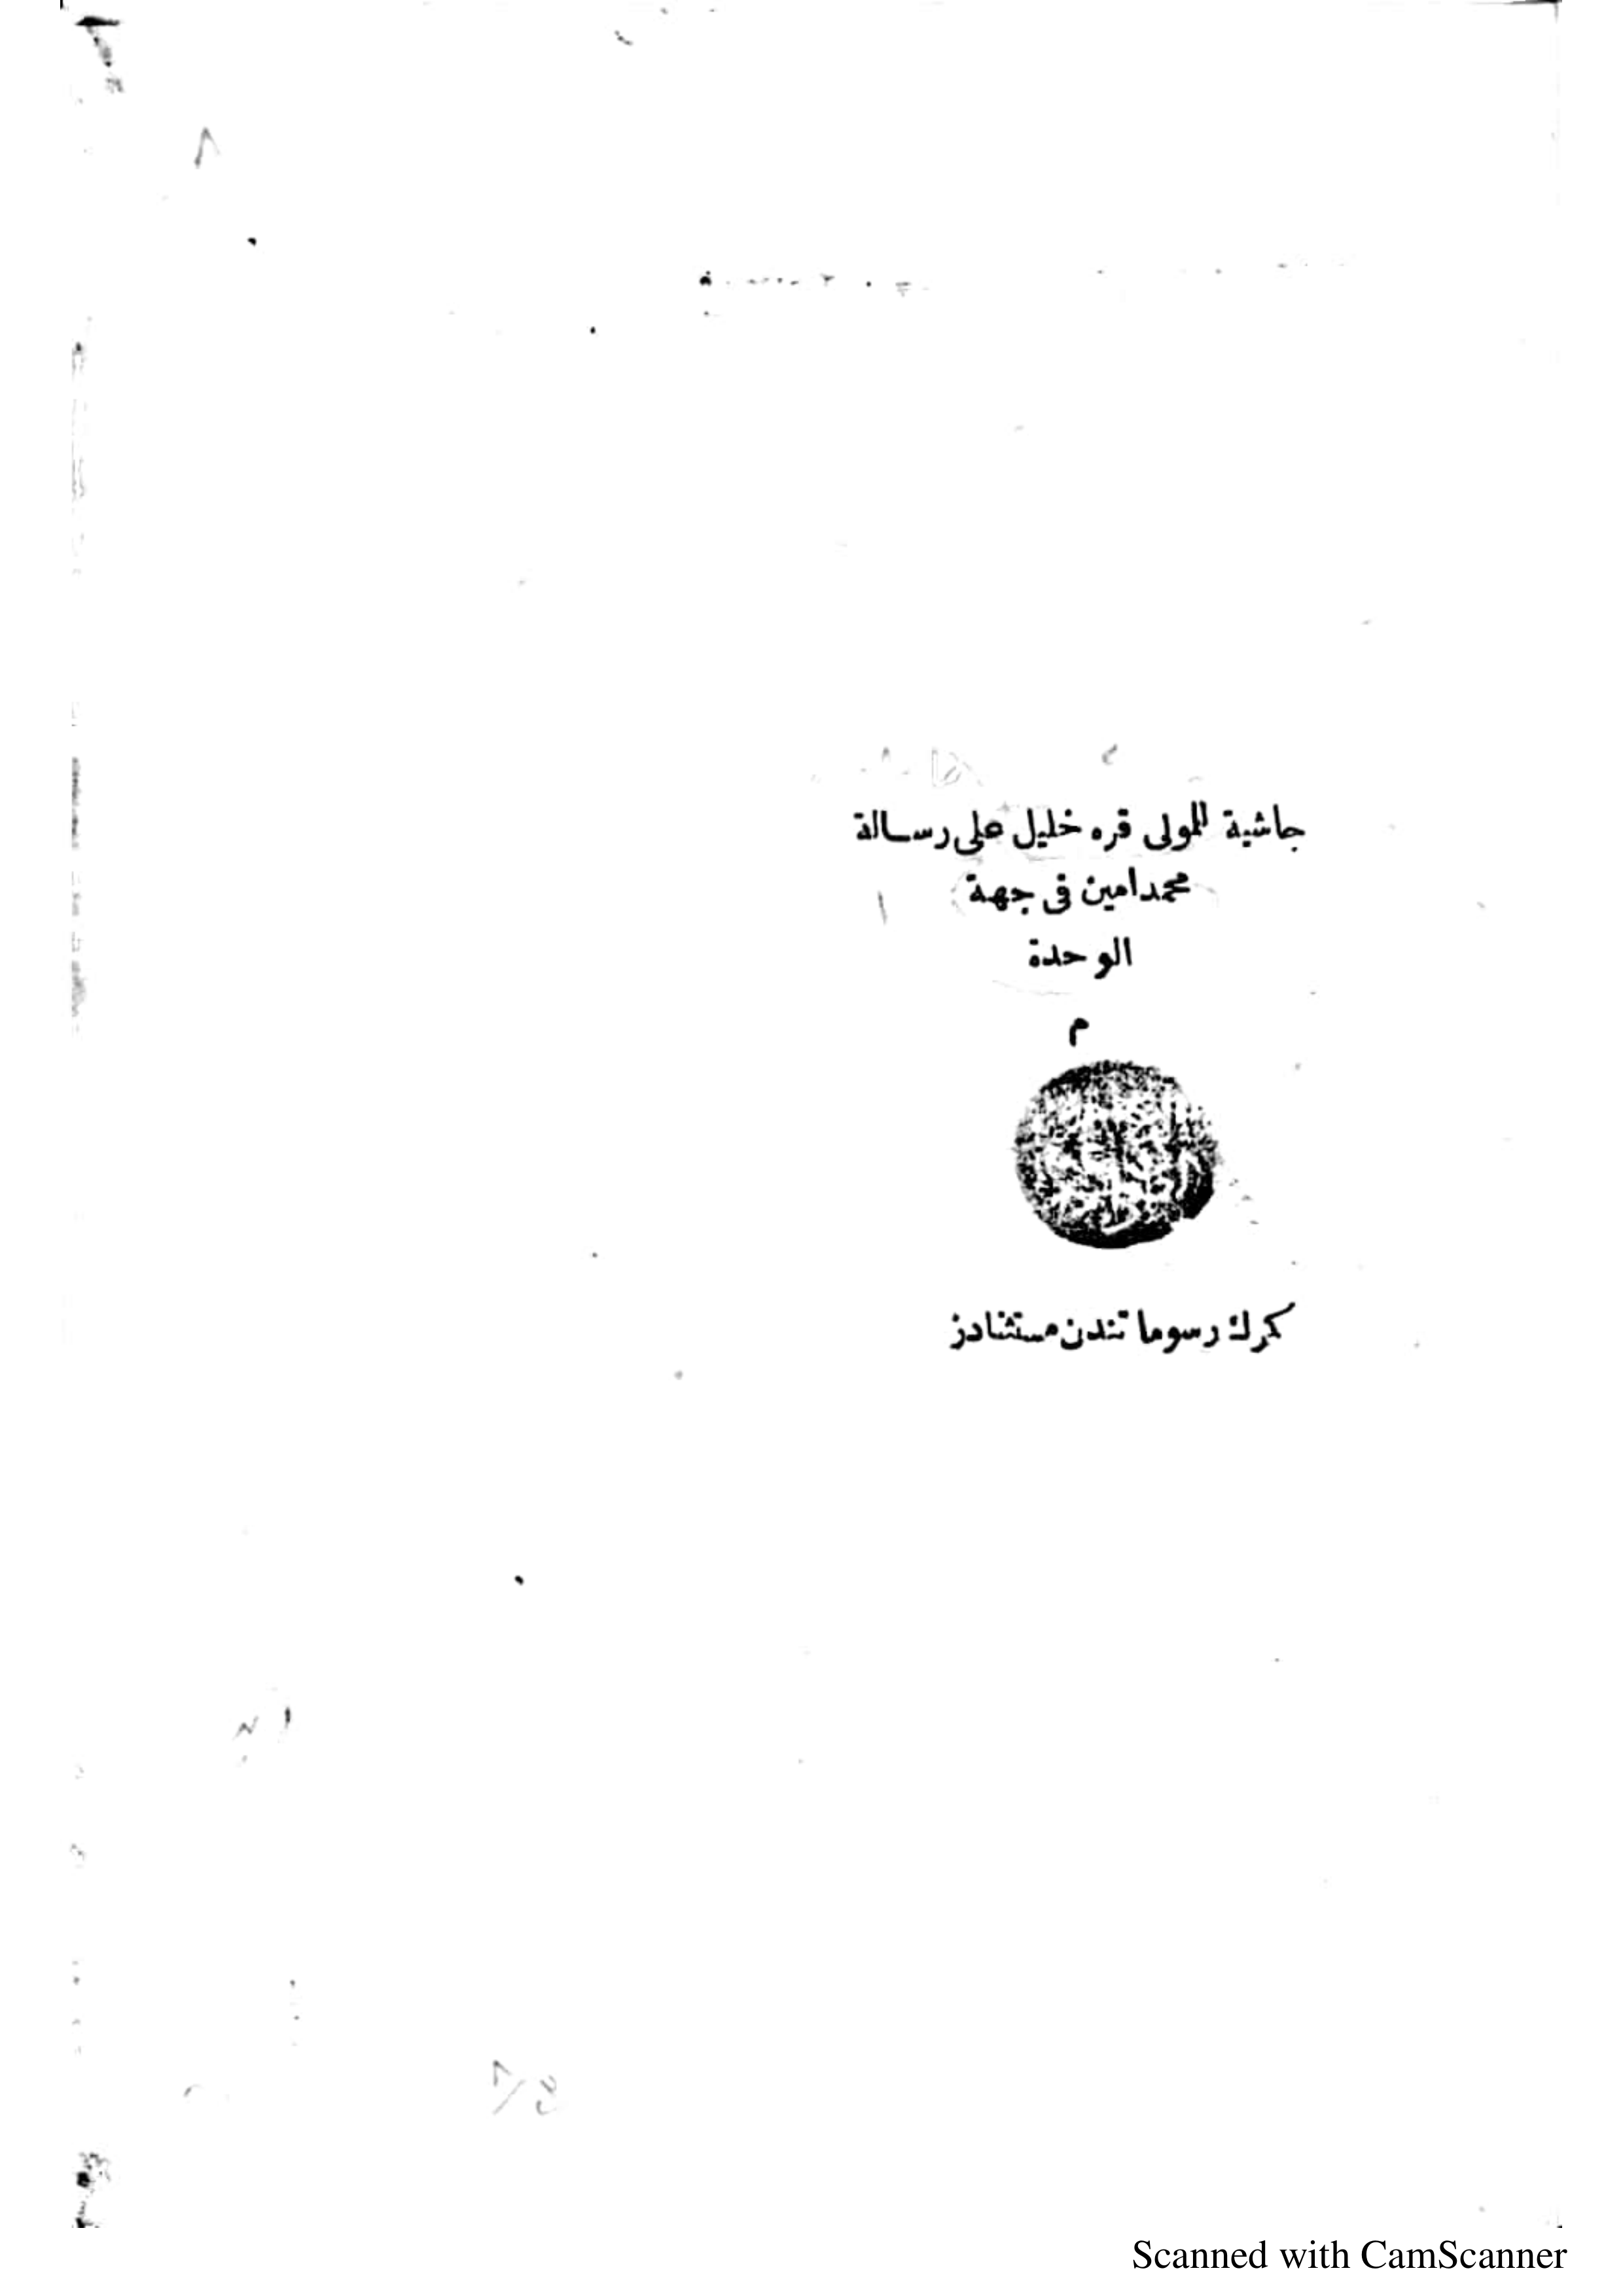 حاشية للمولى قره خليل على رسالة
محمد امين فى جهة
الوحدة
م
كمرك رسوماتندن مستثنادر
Scanned with CamScanner